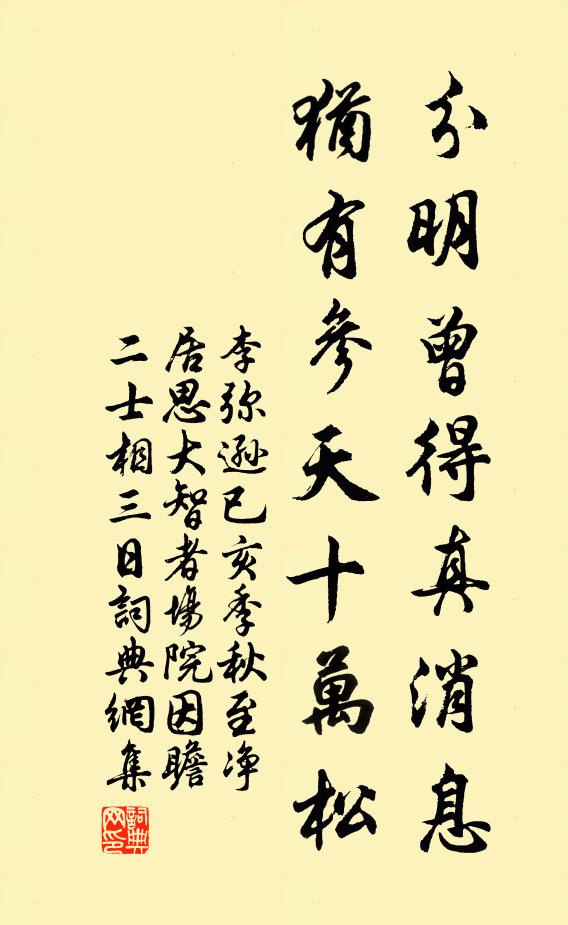 分明曾得真消息
猶有參天十萬松
李弥遜已亥季秋至净
居思大智者場院因瞻
二士相三日詞典網集
詞典
网印